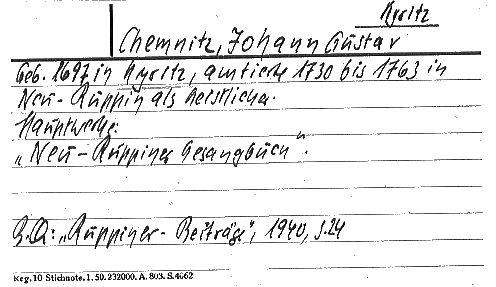 Kyritz
Chemnitz, Johann Gustav
Geb. 1697 in Kyritz, amtierte 1730 bis 1763 in
Neu-Ruppin als Geistlicher.
Hauptwerke:
„Neu-Ruppiner Gesangbuch".
Z.Q.: „Ruppiner-Beiträge", 1940, S. 24
Keg. 10 Stichnote. 1. 50. 232000. A. 803. S. 4662